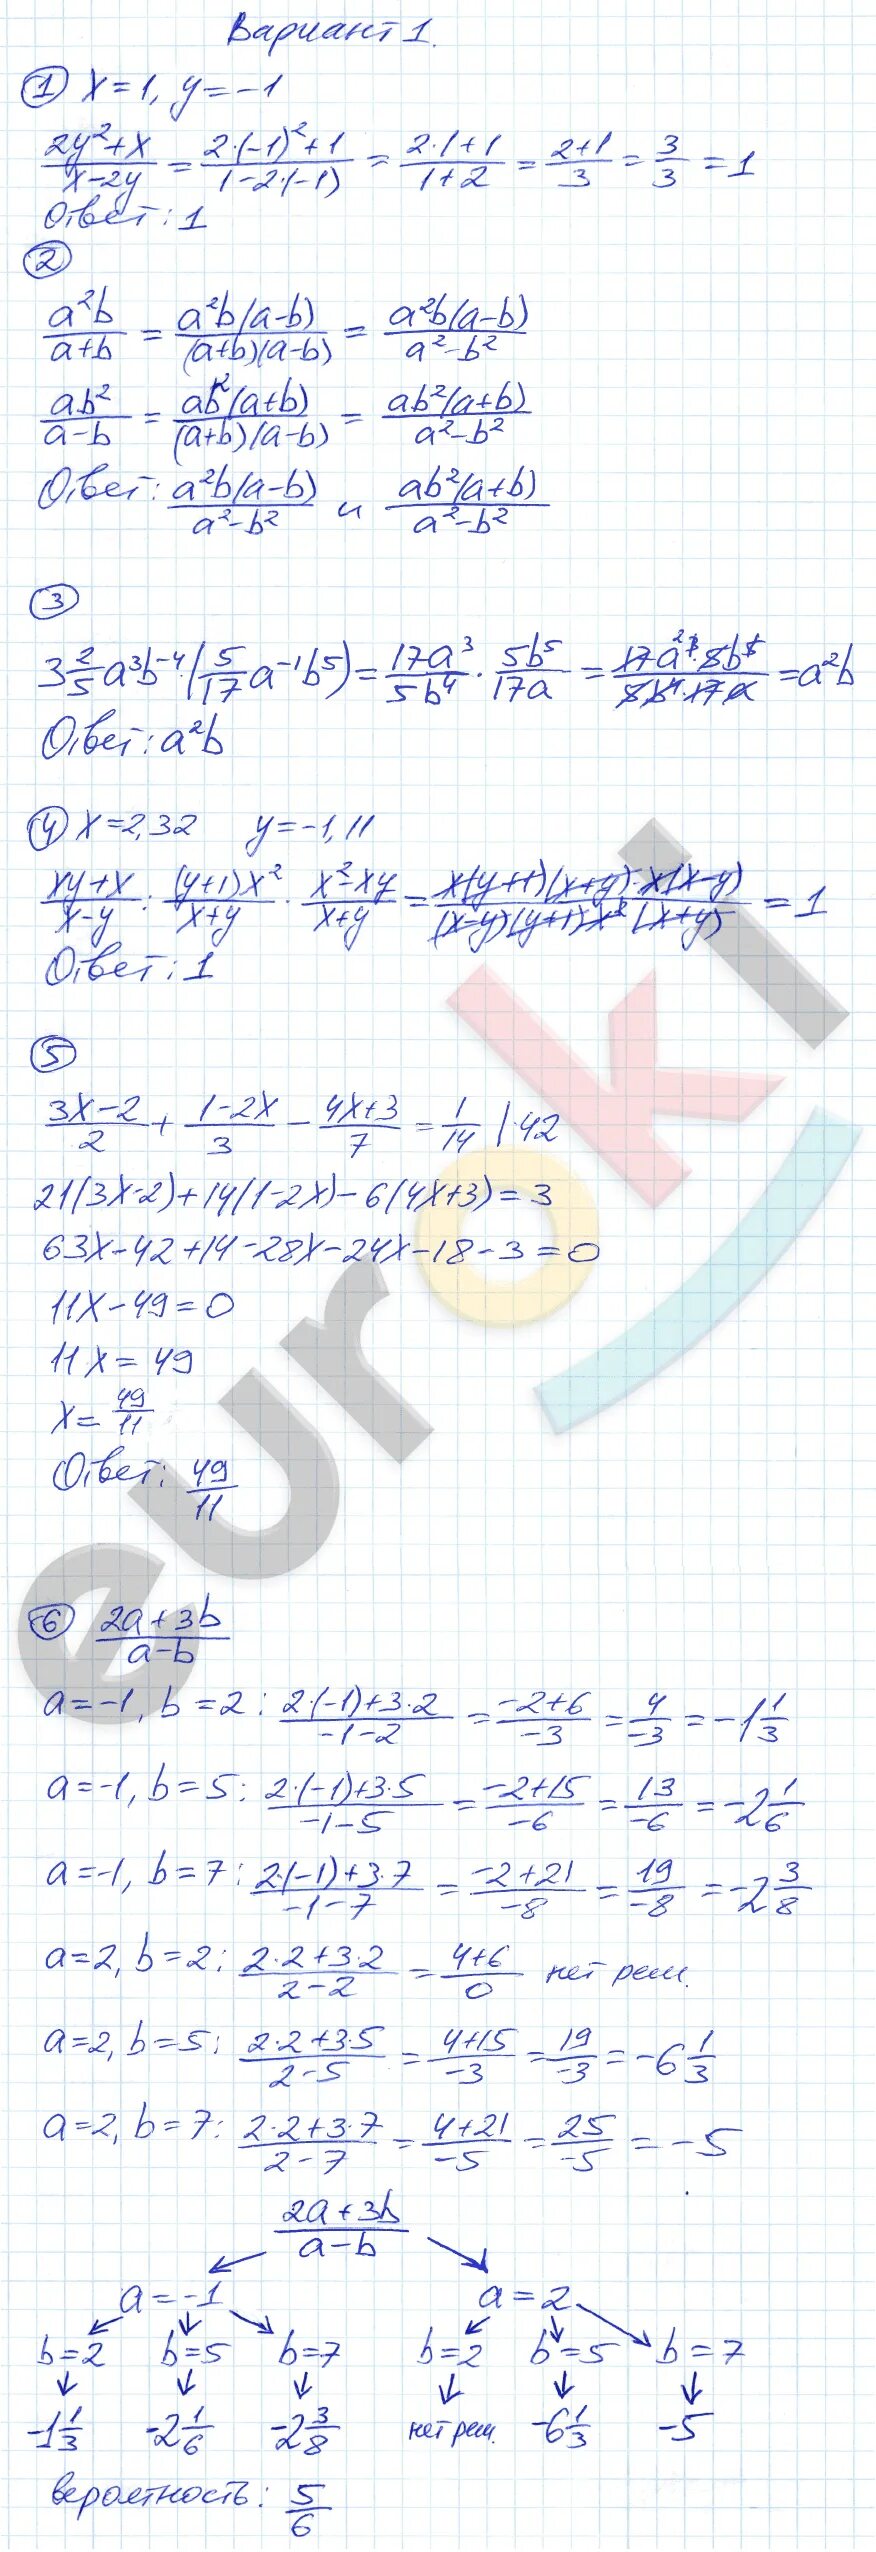 Вариант 1.
① x=1, y=-1
(2y²+x)/(x-2y) = (2·(-1)²+1)/(1-2·(-1)) = (2·1+1)/(1+2) = (2+1)/3 = 3/3 = 1
Ответ: 1
②
a²b/(a+b) = a²b(a-b)/((a+b)(a-b)) = a²b(a-b)/(a²-b²)
ab²/(a-b) = ab²(a+b)/((a+b)(a-b)) = ab²(a+b)/(a²-b²)
Ответ: a²b(a-b)/(a²-b²) и ab²(a+b)/(a²-b²)
③
3 2/5 a³b⁻⁴·(5/17 a⁻¹b⁵) = 17a³/5b⁴ · 5b⁵/17a = 17a³·5b⁵/5b⁴·17a = a²b
Ответ: a²b
④ x=2,32 y=-1,11
(xy+x)/(x-y) : (y+1)x²/(x+y) · (x²-xy)/(x+y) = x(y+1)(x+y)·x(x-y)/((x-y)(y+1)x²(x+y)) = 1
Ответ: 1
⑤
(3x-2)/2 + (1-2x)/3 - (4x+3)/7 = 1/14 |·42
21(3x-2)+14(1-2x)-6(4x+3)=3
63x-42+14-28x-24x-18-3=0
11x-49=0
11x=49
x=49/11
Ответ: 49/11
⑥ (2a+3b)/(a-b)
a=-1, b=2: (2·(-1)+3·2)/(-1-2) = (-2+6)/-3 = 4/-3 = -1 1/3
a=-1, b=5: (2·(-1)+3·5)/(-1-5) = (-2+15)/-6 = 13/-6 = -2 1/6
a=-1, b=7: (2·(-1)+3·7)/(-1-7) = (-2+21)/-8 = 19/-8 = -2 3/8
a=2, b=2: (2·2+3·2)/(2-2) = (4+6)/0 нет реш.
a=2, b=5: (2·2+3·5)/(2-5) = (4+15)/-3 = 19/-3 = -6 1/3
a=2, b=7: (2·2+3·7)/(2-7) = (4+21)/-5 = 25/-5 = -5
(2a+3b)/(a-b)
a=-1 a=2
b=2 b=5 b=7 b=2 b=5 b=7
-1 1/3 -2 1/6 -2 3/8 нет реш. -6 1/3 -5
вероятность: 5/6
euroki